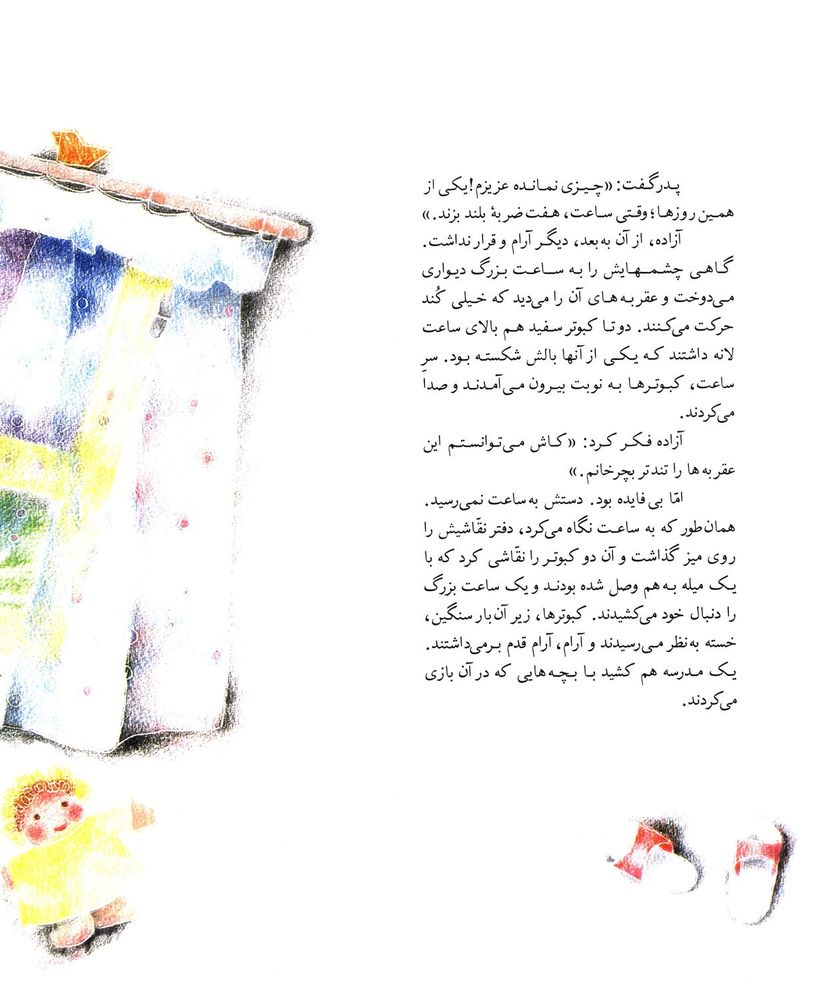 پدرگفت: «چیزی نمانده عزیزم! یکی از
همین روزها؛ وقتی ساعت، هفت ضربهٔ بلند بزند.»
آزاده، از آن به‌بعد، دیگر آرام و قرار نداشت.
گاهی چشمهایش را به ساعت بزرگ دیواری
می‌دوخت و عقربه‌های آن را می‌دید که خیلی کُند
حرکت می‌کنند. دوتا کبوتر سفید هم بالای ساعت
لانه داشتند که یکی از آنها بالش شکسته بود. سرِ
ساعت، کبوترها به نوبت بیرون می‌آمدند و صدا
می‌کردند.
آزاده فکر کرد: «کاش می‌توانستم این
عقربه‌ها را تندتر بچرخانم.»
امّا بی‌فایده بود. دستش به‌ساعت نمی‌رسید.
همان‌طور که به ساعت نگاه می‌کرد، دفتر نقّاشیش را
روی میز گذاشت و آن دو کبوتر را نقّاشی کرد که با
یک میله به‌هم وصل شده بودند و یک ساعت بزرگ
را دنبال خود می‌کشیدند. کبوترها، زیر آن‌بار سنگین،
خسته به‌نظر می‌رسیدند و آرام، آرام قدم برمی‌داشتند.
یک مدرسه هم کشید با بچه‌هایی که در آن بازی
می‌کردند.